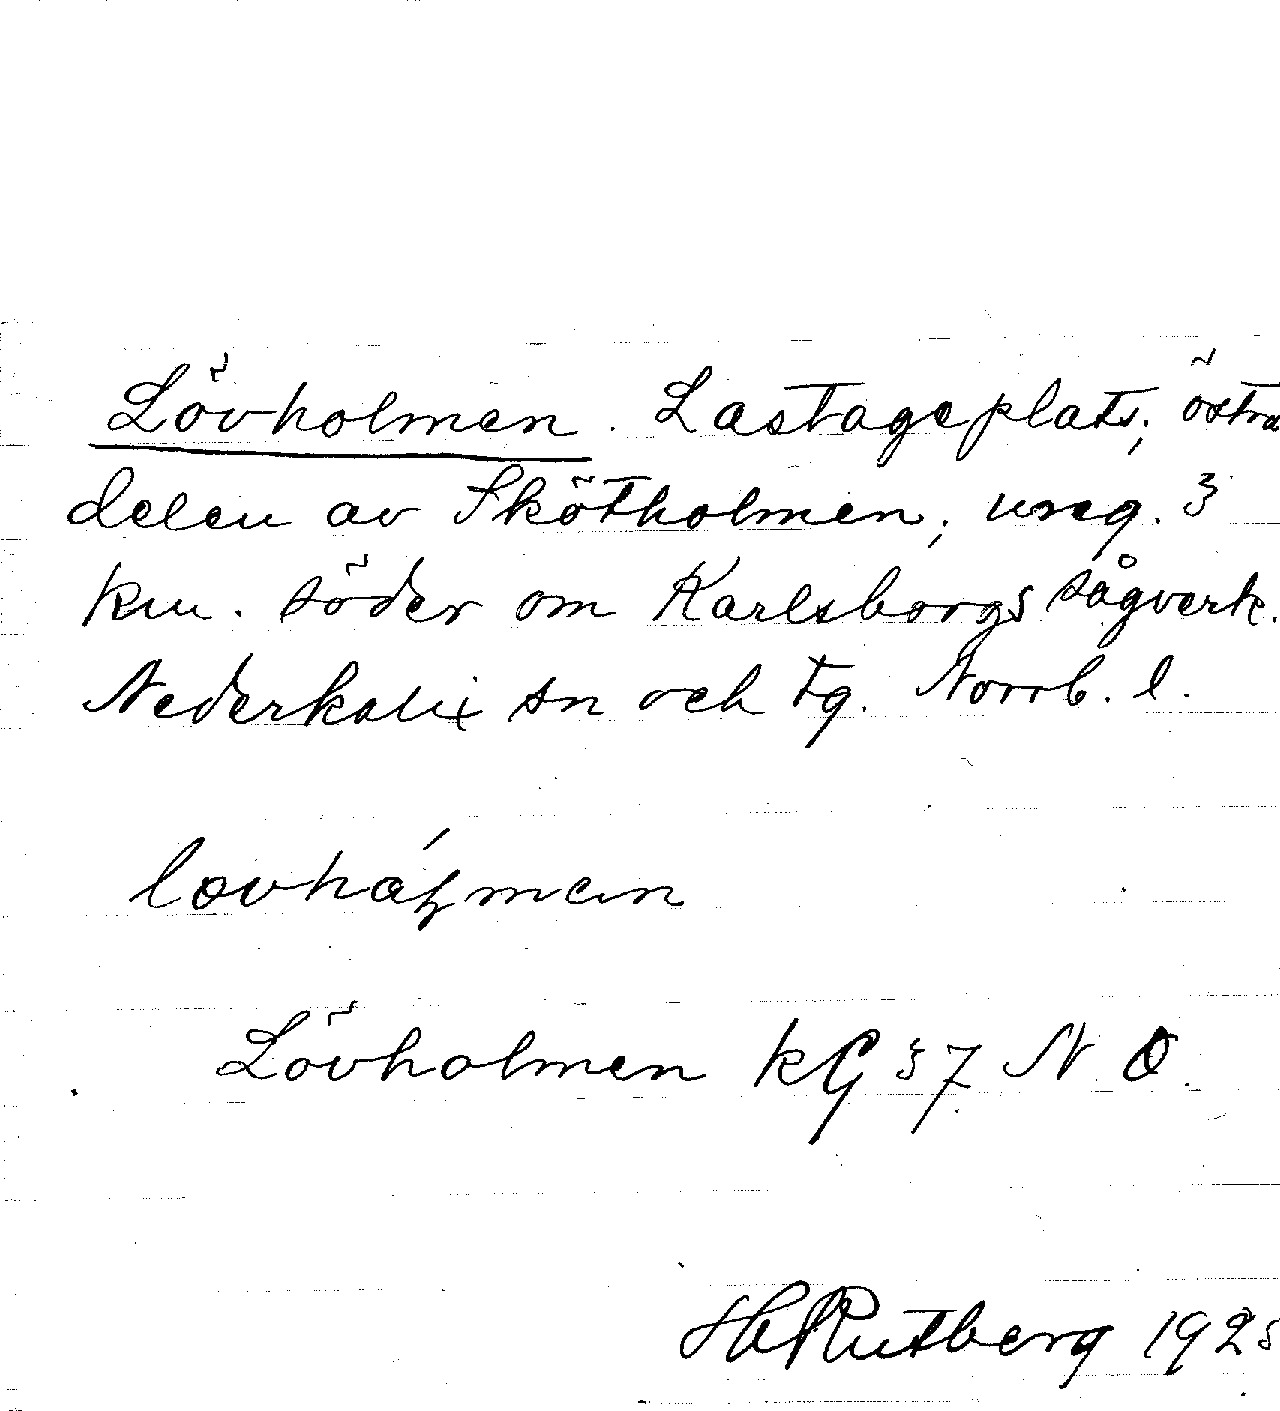 Lövholmen. Lastageplats, östra
delen av Skötholmen, ung. 3
km. söder om Karlsborgs sågverk.
Nederkalix sn och tg. Norrb. l.
Lövholmen kG 37 N O.
H Rutberg 1925